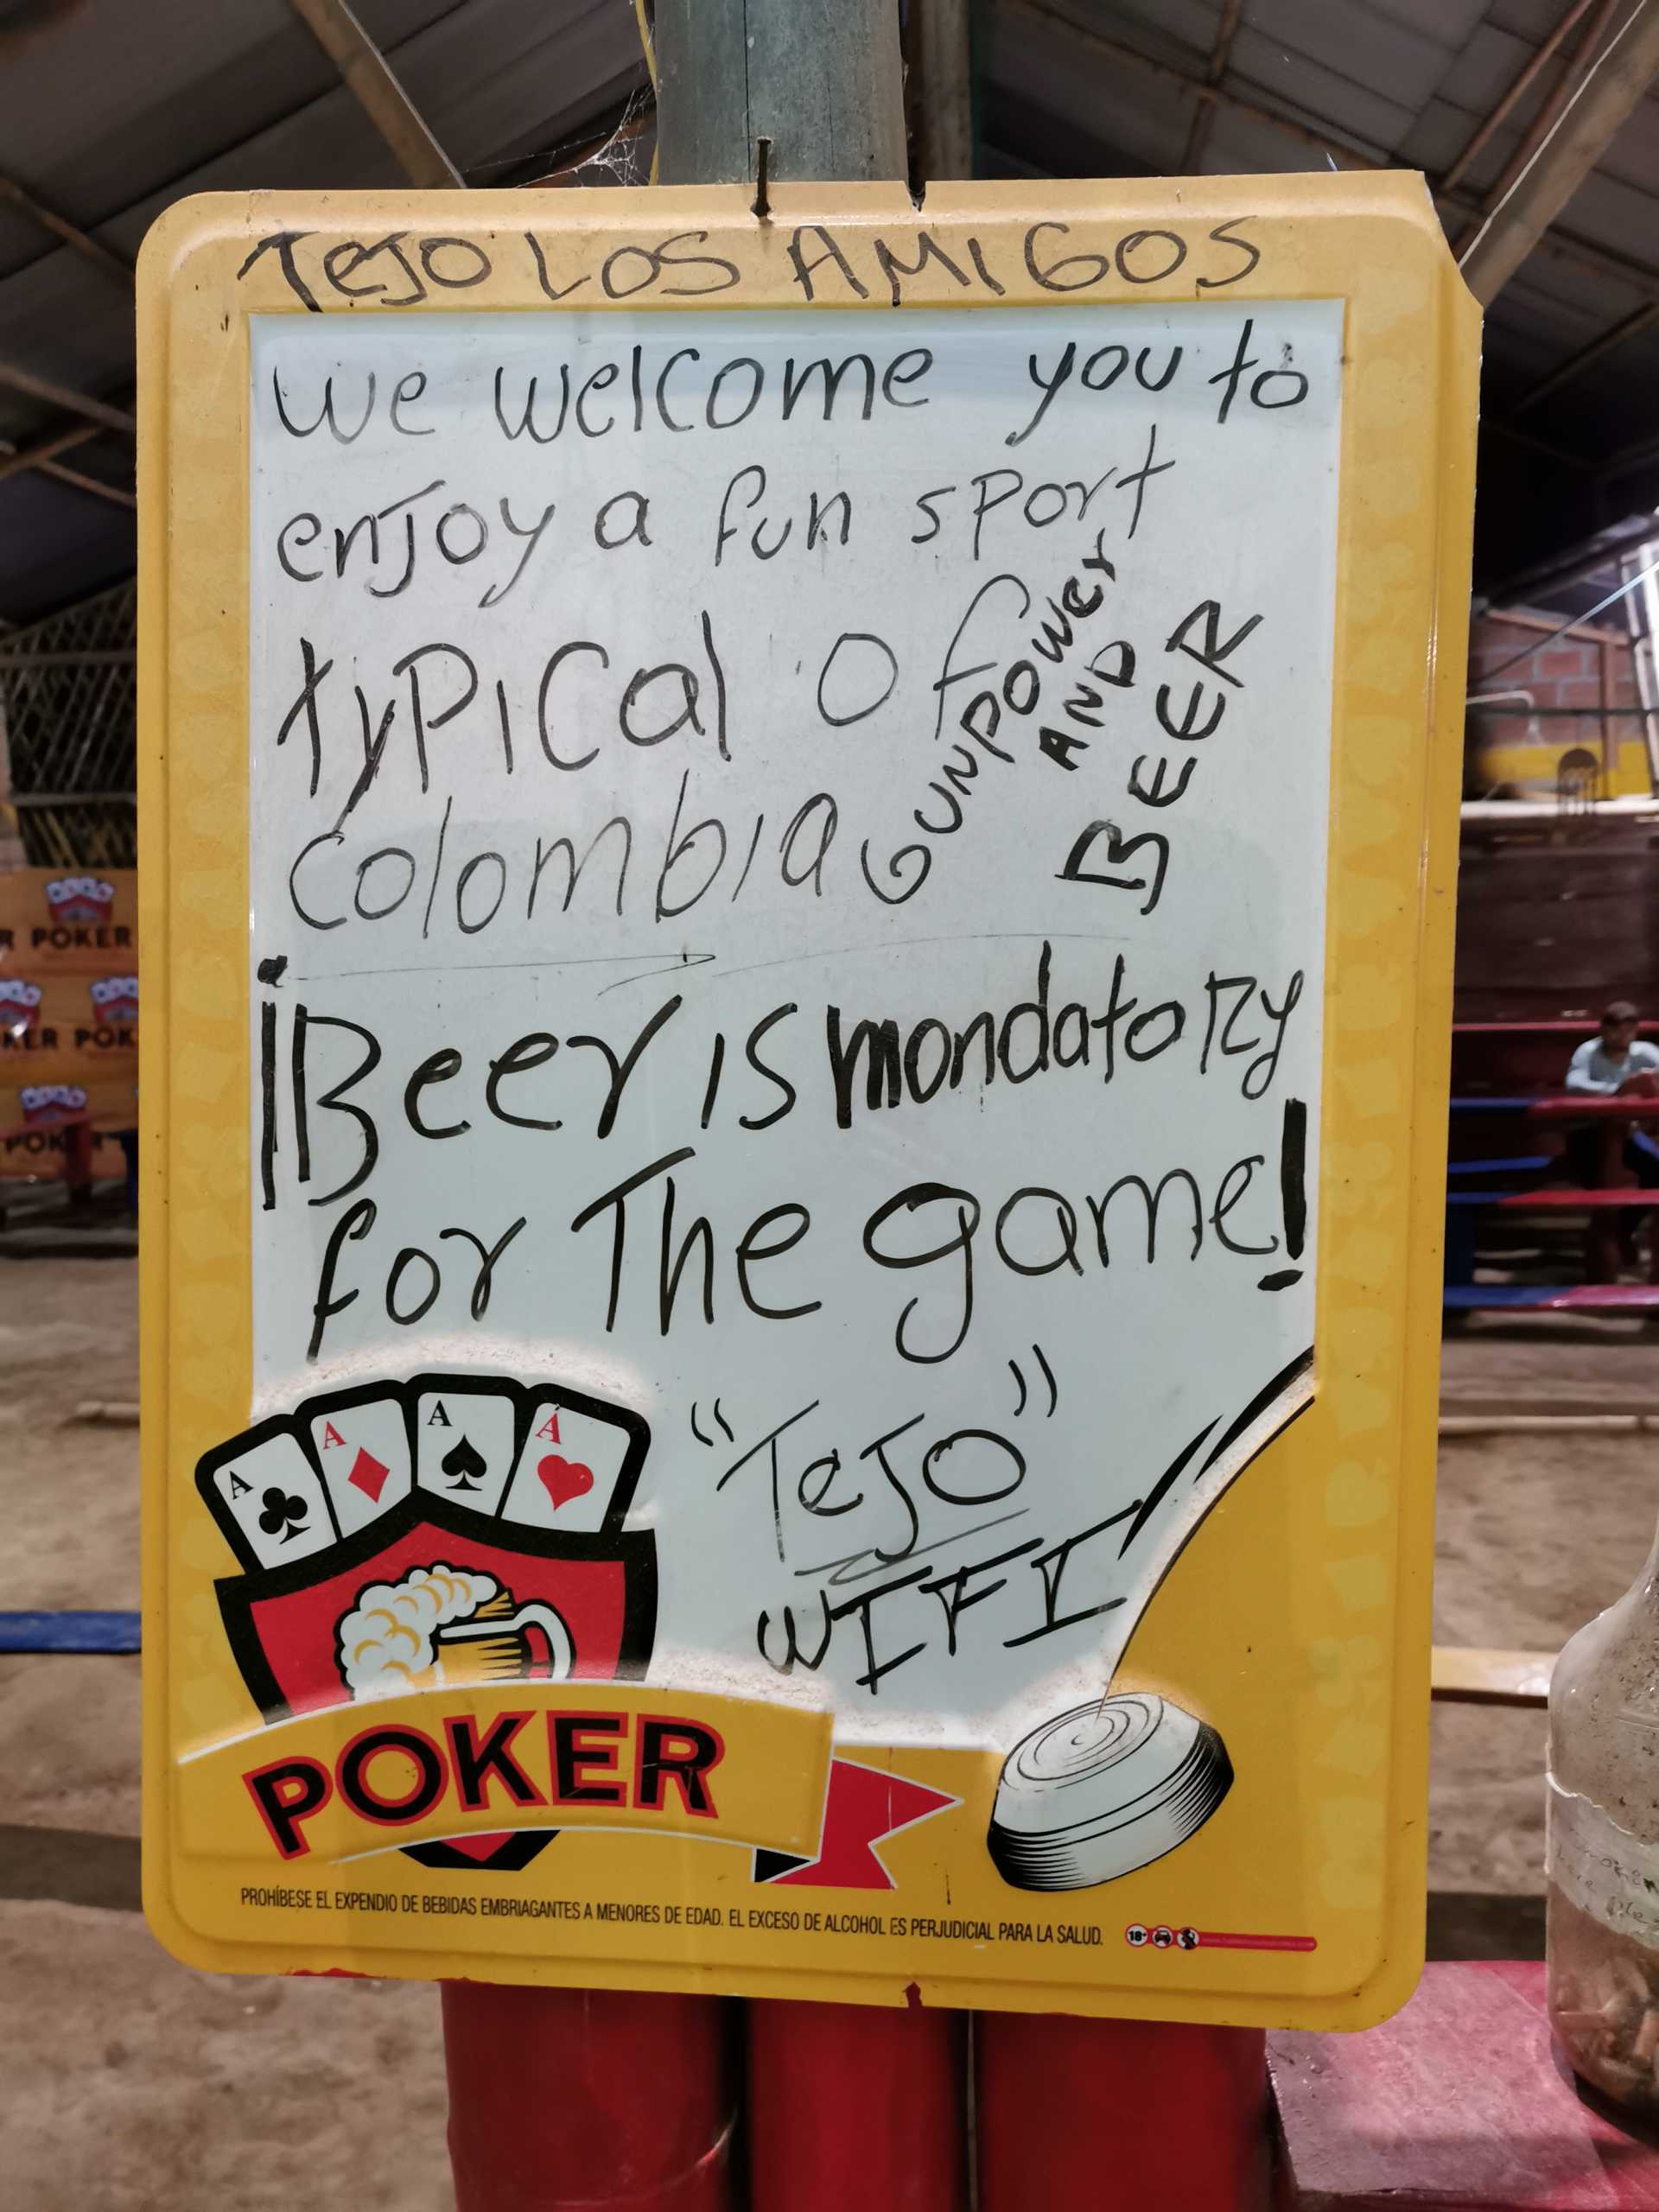 TeJO LOS AMIGOS
we welcome you to
enJoy a fun sport
typical of
colombia
GUNPOWer
AND
BEER
¡Beer is mandatory
for The game!
"TeJO"
WIFI
A
A
A
A
POKER
PROHÍBESE EL EXPENDIO DE BEBIDAS EMBRIAGANTES A MENORES DE EDAD. EL EXCESO DE ALCOHOL ES PERJUDICIAL PARA LA SALUD.
18+
R POKER
KER POK
POKER